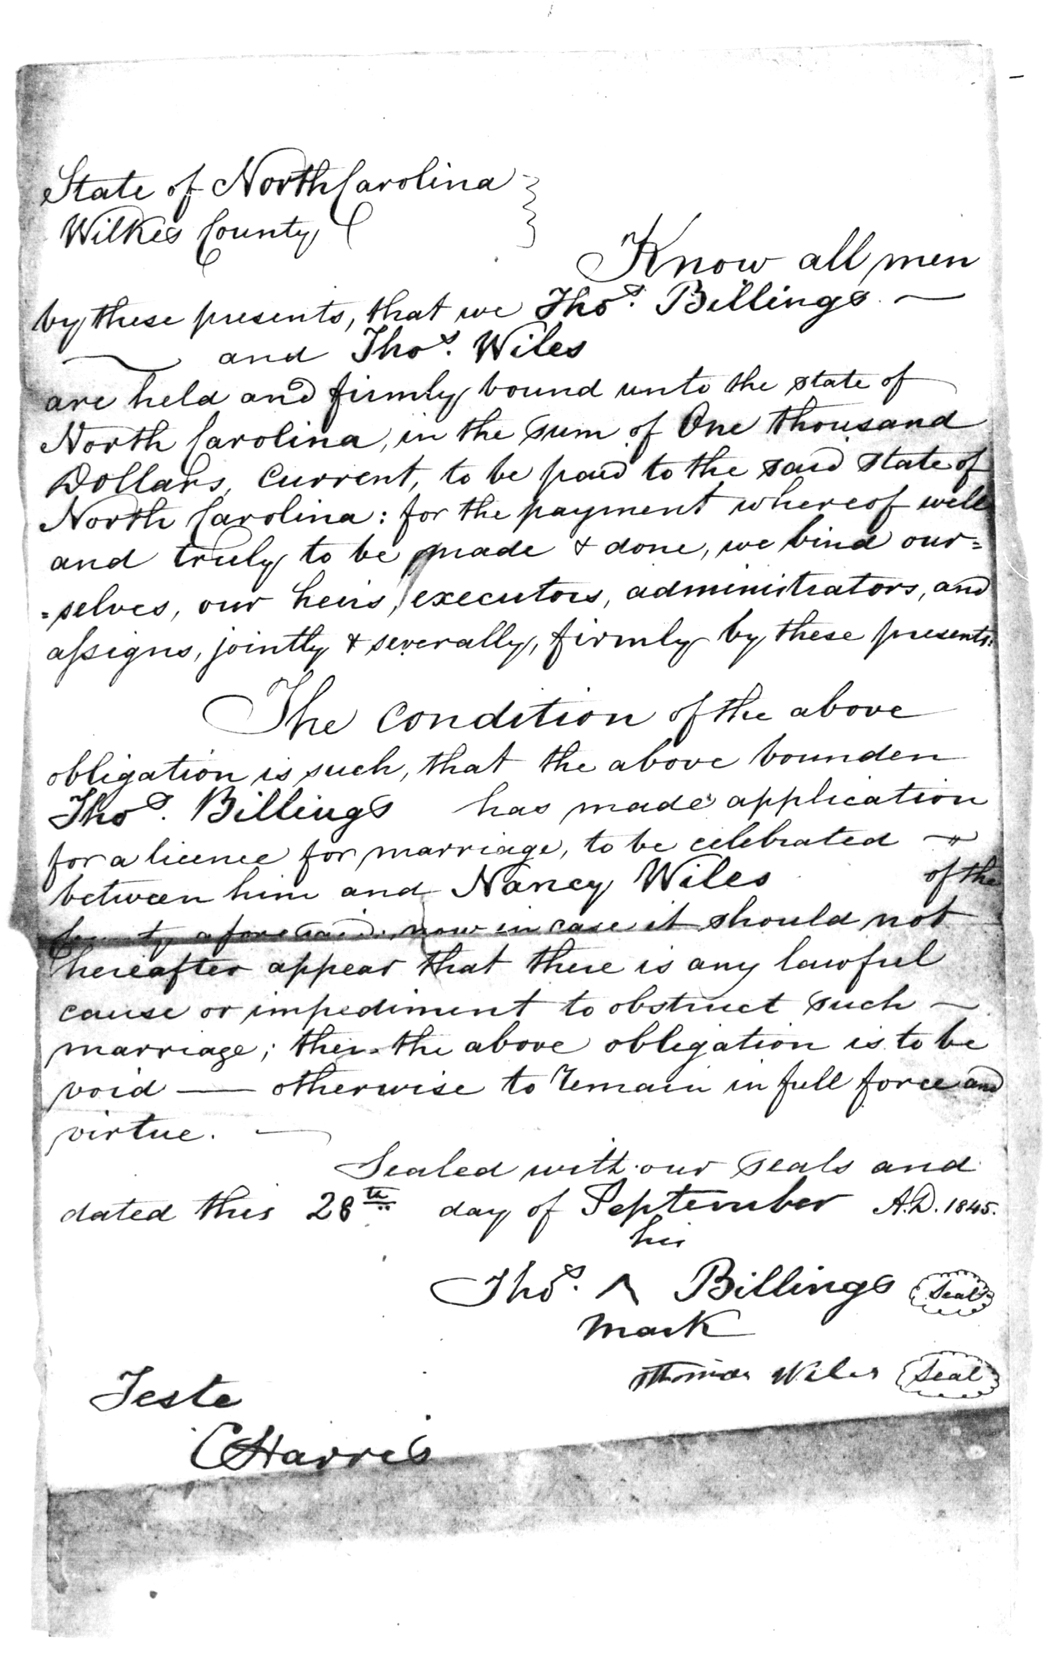 State of North Carolina
Wilkes County
Know all men
by these presents, that we Thos. Billings
and Thos. Wiles
are held and firmly bound unto the state of
North Carolina, in the sum of One thousand
Dollars, current, to be paid to the said state of
North Carolina: for the payment whereof well
and truly to be made & done, we bind our=
=selves, our heirs, executors, administrators, and
assigns, jointly & severally, firmly by these presents.
The condition of the above
obligation is such, that the above bounden
Thos. Billings has made application
for a licence for marriage, to be celebrated
between him and Nancy Wiles of the
County aforesaid. now in case it should not
hereafter appear that there is any lawful
cause or impediment to obstruct such —
marriage; then the above obligation is to be
void — otherwise to remain in full force and
virtue. —
Sealed with our seals and
dated this 28th day of September A.D. 1845.
his
Thos. ^ Billings Seal
mark
Thomas Wiles Seal
Teste
C Harris